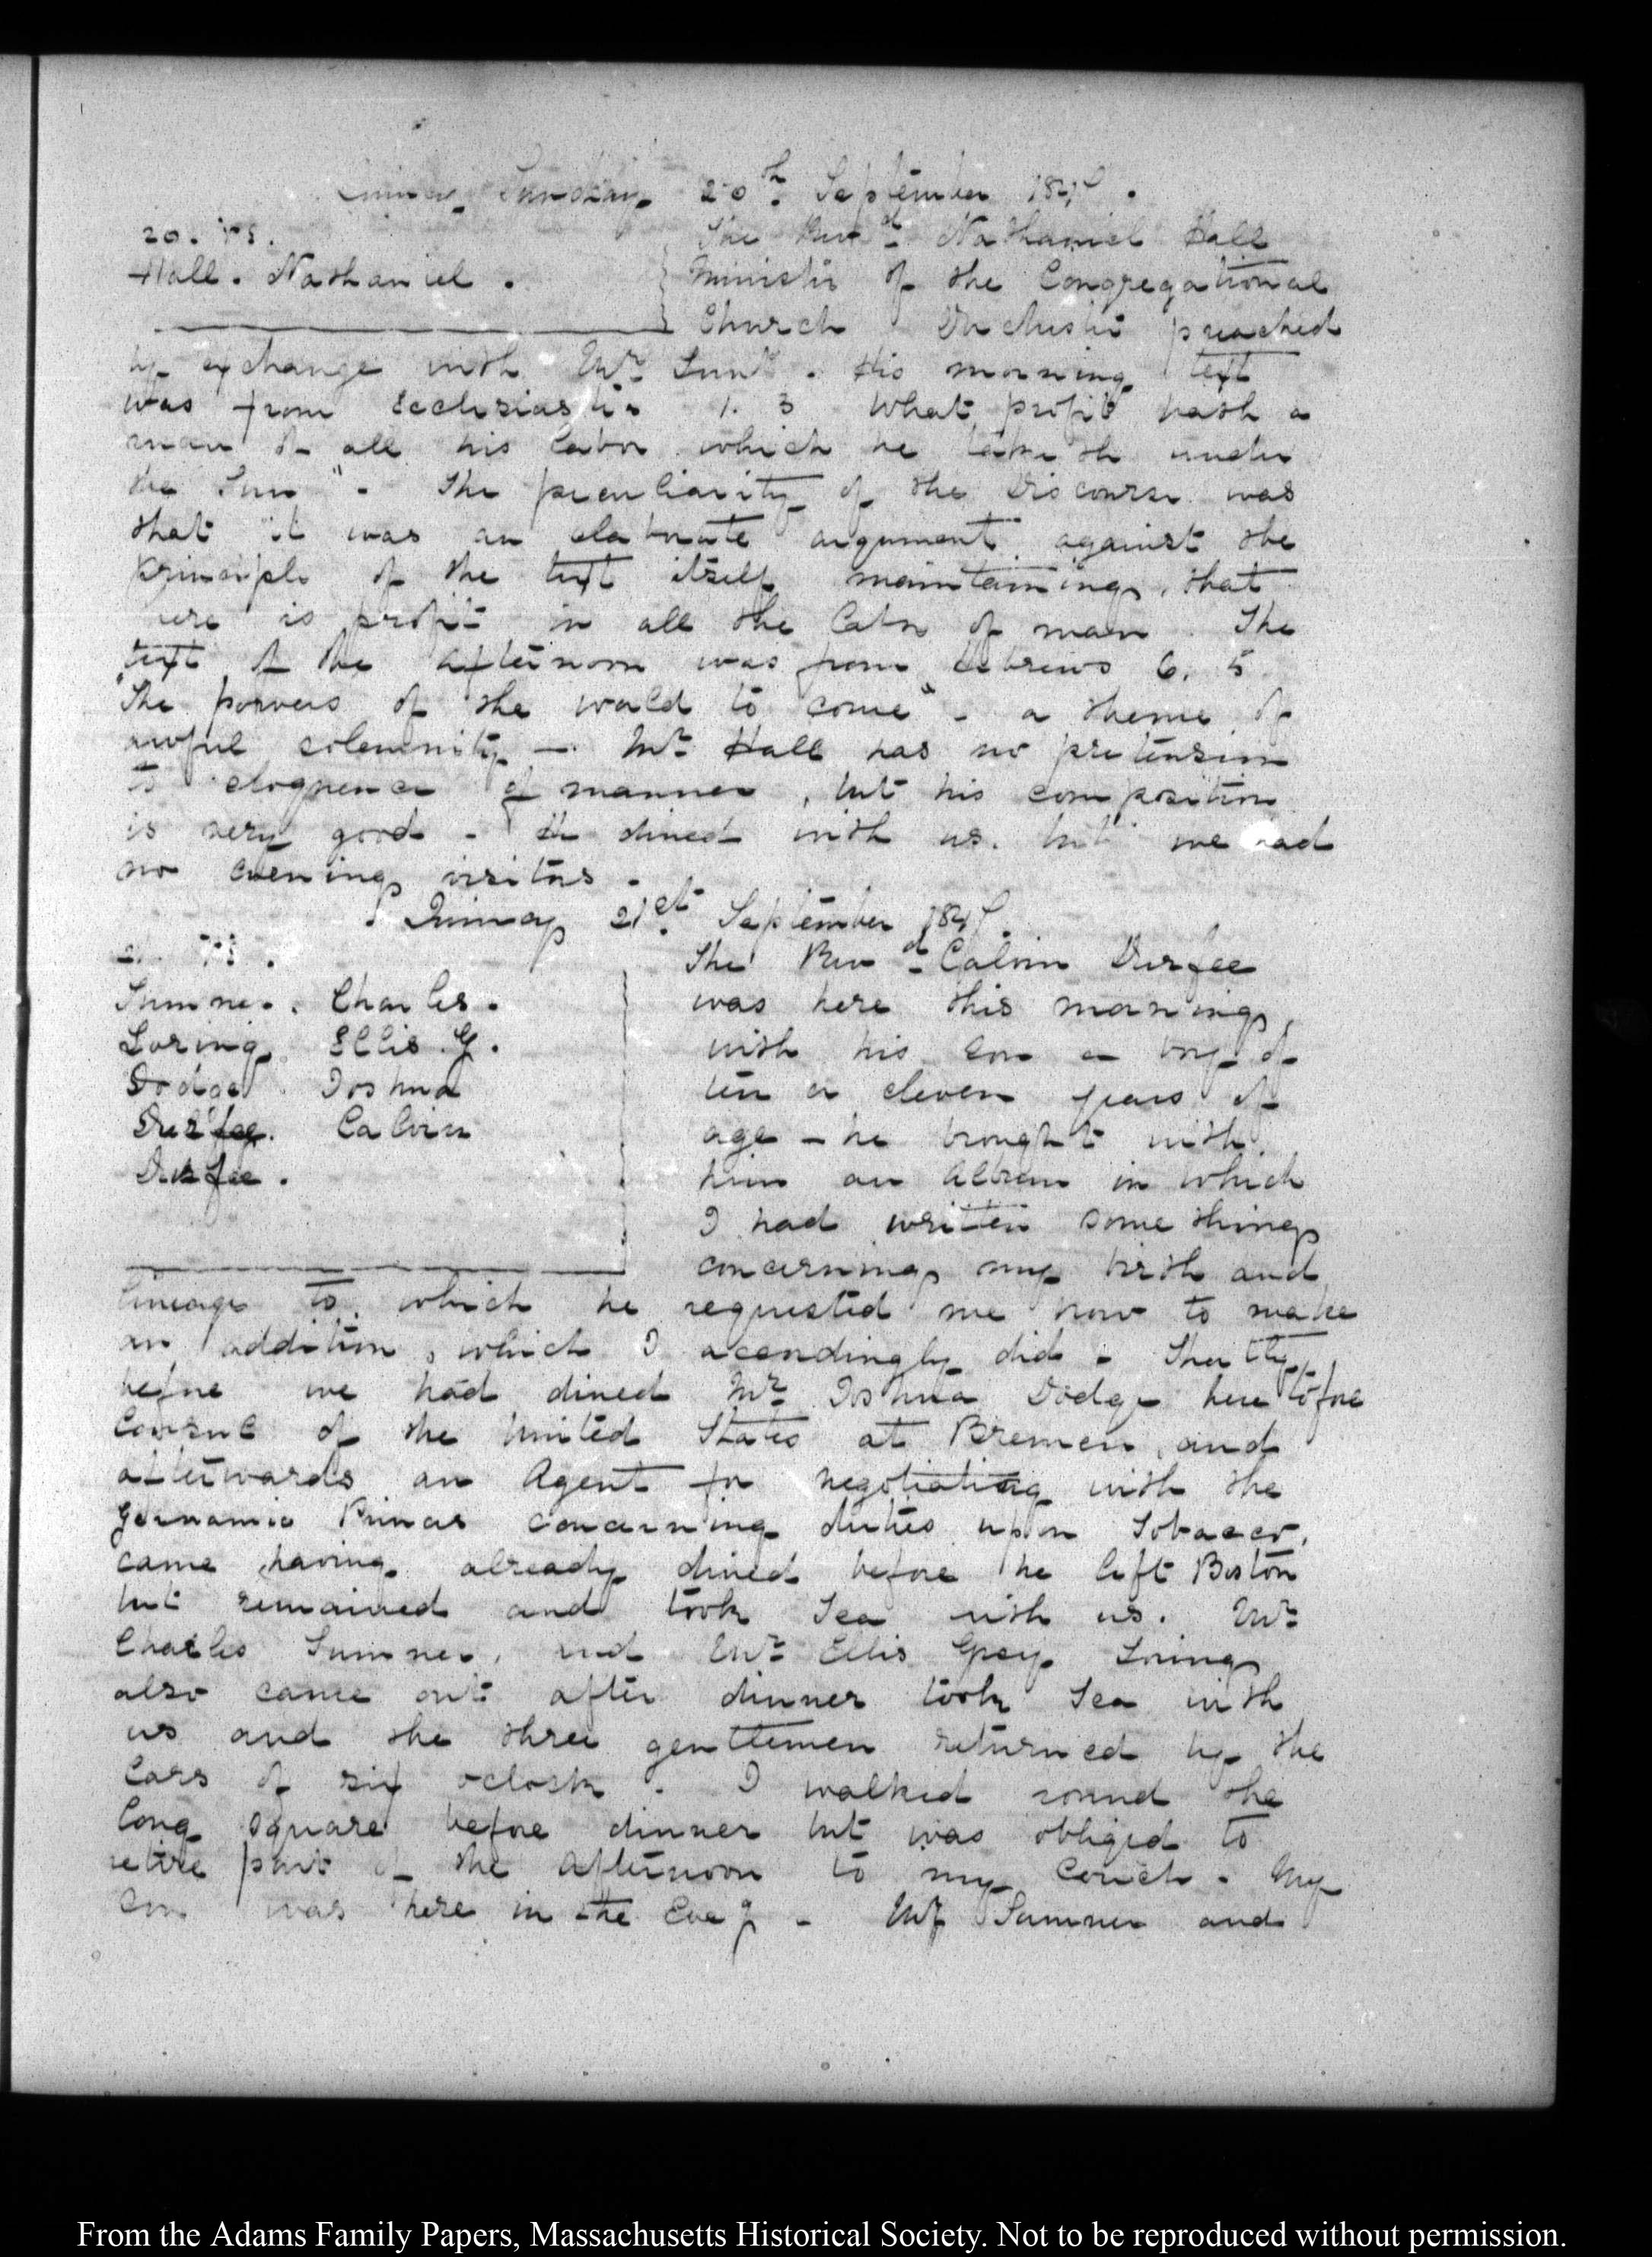 Quincy Sunday 20th September 184
20.
Hall. Nathaniel.
The Revd. Nathaniel Hall
Minister of the Congregational
Church Dorchester preached
by exchange with Mr Lunt. His morning text
was from Ecclesiastes 1. 3 What profit hath a
man of all his labor which he taketh under
the Sun". The peculiarity of the Discourse was
that it was an elaborate argument against the
principle of the text itself maintaining, that
is profit in all the labor of man. The
text of the afternoon was from Hebrews 6. 5
"The powers of the world to come" - a theme of
awful solemnity — Mr Hall has no pretension
to eloquence of manner, but his composition
is very good - He dined with us. but we had
no evening visitors -
Quincy 21st September 184
21.
Sumner. Charles.
Loring Ellis G.
Dodge Joshua
Durfee. Calvin
Durfee.
The Revd Calvin Durfee
was here this morning,
with his son a boy of
ten or eleven years of
age - he brought with
him an Album in which
I had written some things
concerning my birth and
lineage to which he requested me now to make
an addition, which I accordingly did - Shortly
before we had dined Mr Joshua Dodge heretofore
Consul of the United States at Bremen, and
afterwards an Agent for negotiating with the
Germanic Princes concerning duties upon Tobacco,
came having already dined before he left Boston
but remained and took Tea with us. Mr
Charles Sumner, and Mr Ellis Gray Loring
also came out after dinner took Tea with
us and the three gentlemen returned by the
Cars of six oclock - I walked round the
long square before dinner but was obliged to
retire part of the afternoon to my Couch - My
Son was here in the Eveg - Mr Sumner and
From the Adams Family Papers, Massachusetts Historical Society. Not to be reproduced without permission.